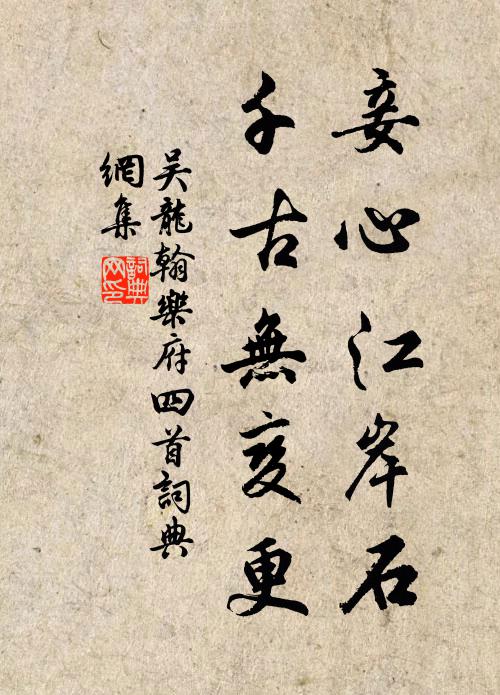 妾心江岸石
千古無变更
吴龍翰樂府四首詞典
網集
詞典網印